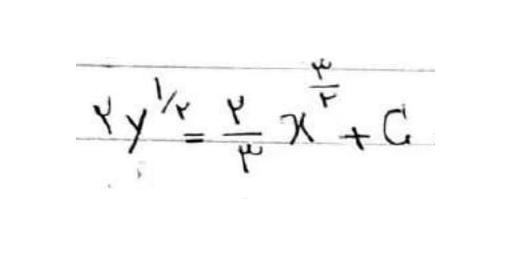 ۲y^{۱/۲} = \frac{۲}{۳} x^{\frac{۳}{۲}} + C